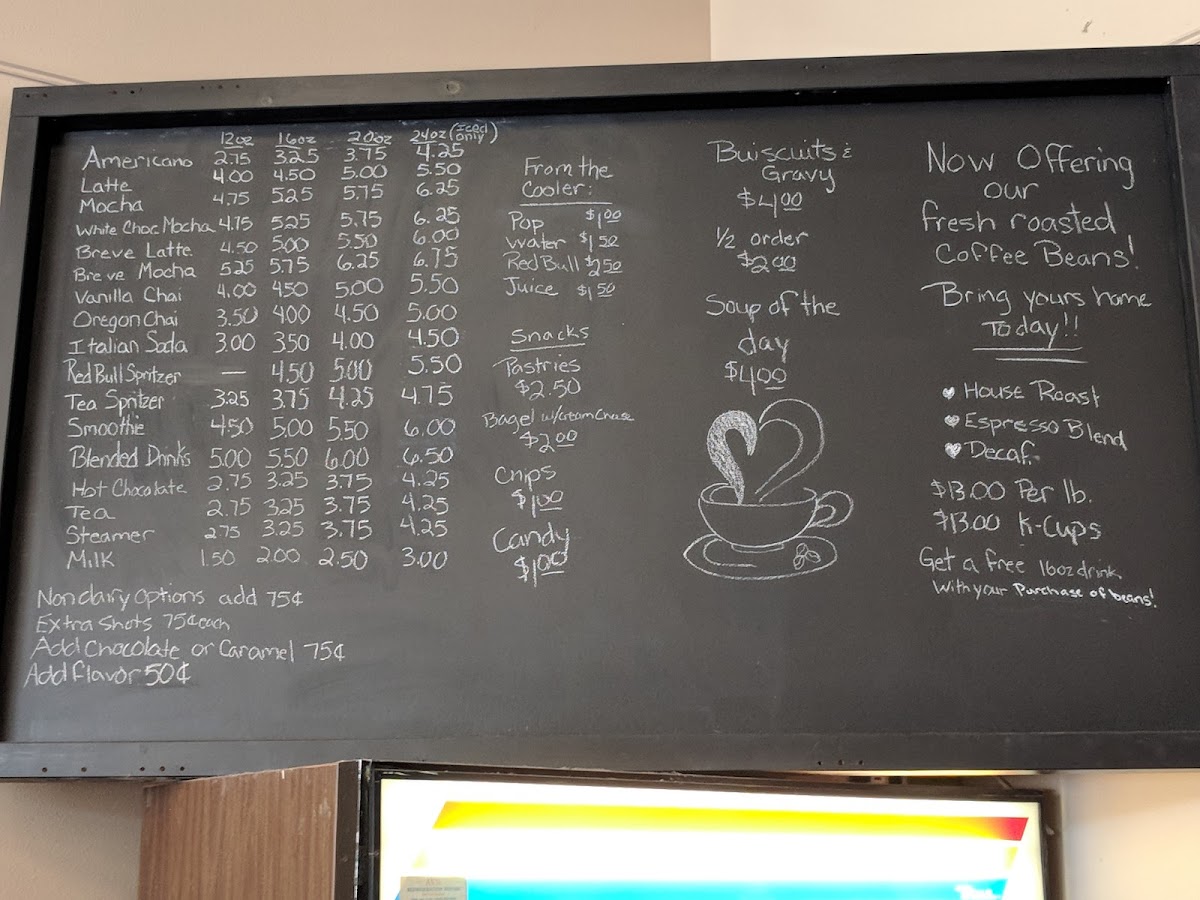 12oz 16oz 20oz 24oz (Iced only)
Americano 2.75 3.25 3.75 4.25
Latte 4.00 4.50 5.00 5.50
Mocha 4.75 5.25 5.75 6.25
White Choc Mocha 4.75 5.25 5.75 6.25
Breve Latte 4.50 5.00 5.50 6.00
Breve Mocha 5.25 5.75 6.25 6.75
Vanilla Chai 4.00 4.50 5.00 5.50
Oregon Chai 3.50 4.00 4.50 5.00
Italian Soda 3.00 3.50 4.00 4.50
Red Bull Spritzer — 4.50 5.00 5.50
Tea Spritzer 3.25 3.75 4.25 4.75
Smoothie 4.50 5.00 5.50 6.00
Blended Drinks 5.00 5.50 6.00 6.50
Hot Chocolate 2.75 3.25 3.75 4.25
Tea 2.75 3.25 3.75 4.25
Steamer 2.75 3.25 3.75 4.25
Milk 1.50 2.00 2.50 3.00
Nondairy Options add 75¢
Extra Shots 75¢ each
Add Chocolate or Caramel 75¢
Add flavor 50¢
From the
Cooler:
Pop $1.00
Water $1.50
Red Bull $2.50
Juice $1.50
Snacks
Pastries
$2.50
Bagel w/cream chease
$2.00
Chips
$1.00
Candy
$1.00
Buiscuits &
Gravy
$4.00
1/2 order
$2.00
Soup of the
day
$4.00
Now Offering
our
fresh roasted
Coffee Beans!
Bring yours home
Today!!
House Roast
Espresso Blend
Decaf
$13.00 Per lb.
$13.00 K-Cups
Get a free 16oz drink
with your Purchase of beans!